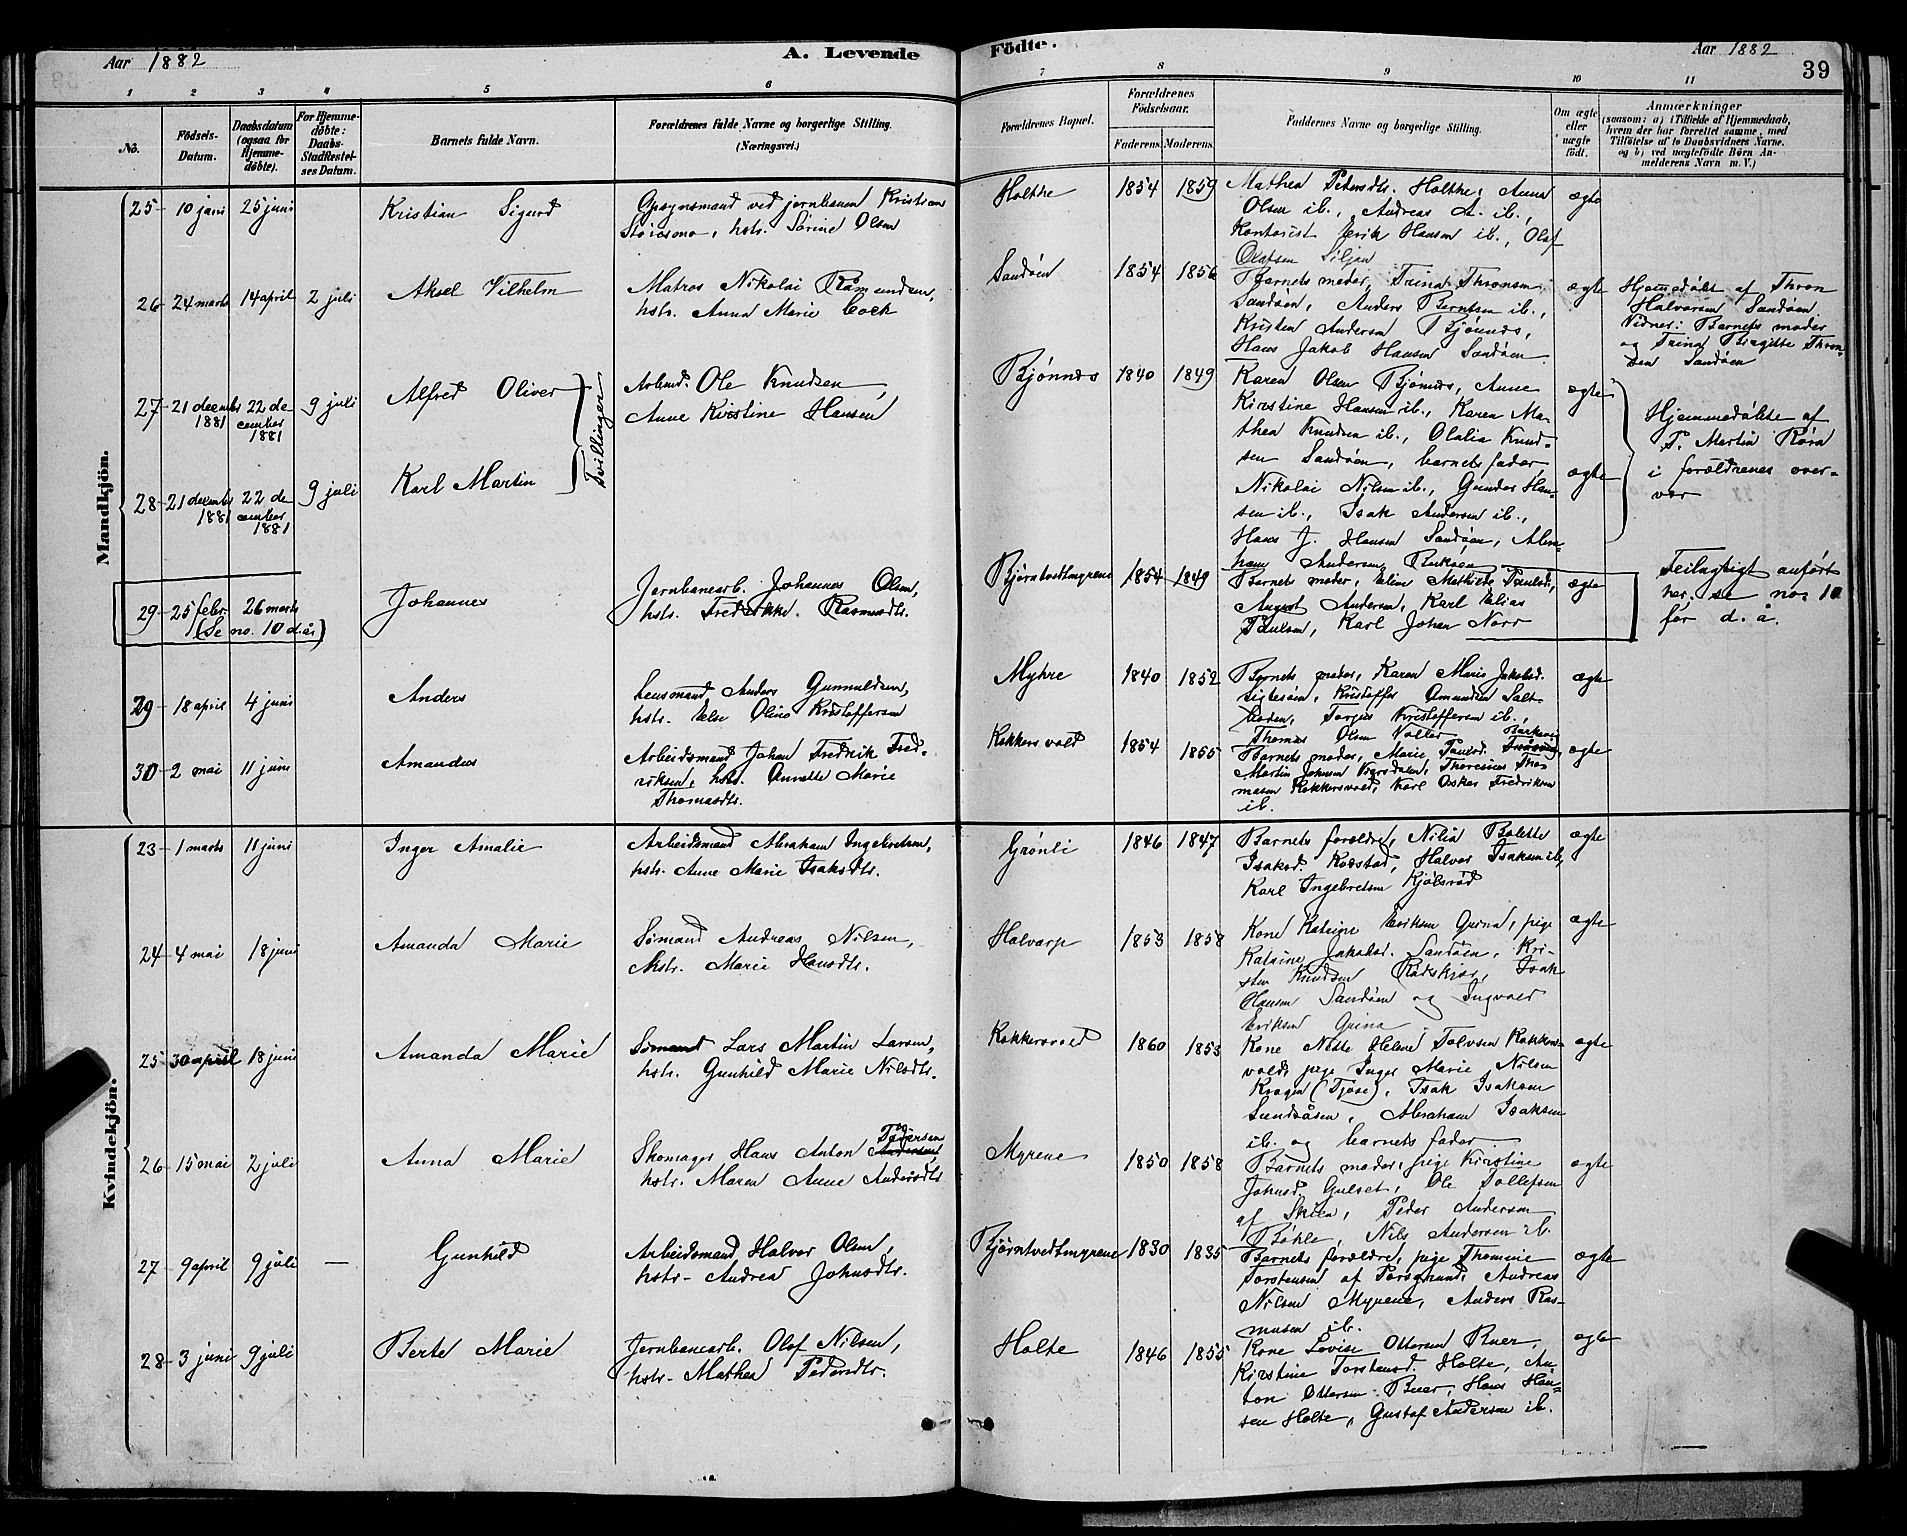 Aar 1882
A. Levende
Födte.
Aar 1882
39
1 2 3 4 5 6 7 8 9 10 11
No.
Födsels-
Datum.
Daabsdatum
(ogsaa for
Hjemme-
döbte).
For Hjemme-
döbte:
Daabs-
Stadfæstel-
ses Datum.
Barnets fulde Navn.
Forældrenes fulde Navne og borgerlige Stilling.
(Næringsvei.)
Forældrenes Bopæl.
Forældrenes
Födselsaar.
Faderens Moderens
Faddernes Navne og borgerlige Stilling.
Om ægte
eller
uægte
födt.
Anmærkninger
(saasom: a) i Tilfælde af Hjemmedaab,
hvem der har forrettet samme, med
Tilföielse af to Daabsvidners Navne.
og b) ved uægtefödte Börn An-
melderens Navn m. V.)
Mandkjön.
25 10 juni 25 juni
Kristian Sigurd
Opsynsmand ved jernbanen Kristian
hstr. Sørine Olsen
Holthe 1854 1859
Mathea Pedersdtr. Holthe, Anna
Olsen ib., Andreas A. ib.,
Kontorist Henrik Hansen ib., Olaf
Olafsen Siljan
ægte
26 24 marts 14 april 2 juli
Aksel Vilhelm
Matros Nikolai Ramundsen,
hstr. Anna Marie Cock
Sandøen 1854 1856
Barnets moder, Trina Thronsen
Sandøen, Anders Berntsen ib.,
Kristen Andersen Bjønnes,
Hans Jakob Hansen Sandøen
ægte
Hjemmedøbt af Thron
Halvorsen Sandøen
Vidner: Barnets moder
og Trina Birgitte Thron-
sen Sandøen
27 21 decembr 1881 22 de
cember
1881 9 juli
Alfred Oliver
Tvillinger
Arbmd. Ole Knudsen,
Anne Kirstine Hansen
Bjønnes 1840 1849
Karen Olsen Bjønnes, Anne
Kirstine Hansen ib., Karen Ma-
thea Knudsen ib., Olalia Knud-
sen Sandøen, barnets fader,
Nikolai Nilsen ib., Gunder Han-
sen ib., Isak Andersen ib.,
Hans J. Hansen Sandøen, Abra-
ham Andersen
ægte
ægte
Hjemmedøbte af
P. Martin Røra
i forældrenes over-
vær
28 21 decembr 1881 22 de
cember
1881 9 juli
Karl Martin
29 25 febr. 26 marts
(Se no. 10 d. år)
Johannes
Jernbanearb. Johannes Olsen,
hstr. Fredrikke Rasmusdtr.
Bjørntvedtmyrene 1854 1849
Barnets moder, Eline Mathilde Paulsd.,
August Andersen, Karl Elias
Paulsen, Karl Johan Norr
ægte
Feilagtigt anført
her. se no. 10
før d. å.
29 18 april 4 juni
Anders
Lensmand Anders Gunnuldsen,
hstr. Else Oline Kristoffersen
Myhre 1840 1852
Barnets moder, Karen Marie Jakobsd.
Sigtesøen, Kristoffer Amundsen Salt-
boden, Torjus Kristoffersen ib.,
Thomas Olsen Valler
ægte
30 2 mai 11 juni
Amandus
Arbeidsmand Johan Fredrik Fred-
riksen, hstr. Annette Marie
Thomasdtr.
Kokkersvold 1854 1855
Barnets moder, Marie Paulsd.
Martin Johnsen Thoresius Tho-
masen Kokkersvold, Karl Oskar Fredriksen
ib.
ægte
Kvindekjön.
23 1 marts 11 juni
Inger Amalie
Arbeidsmand Abraham Ingebretsen,
hstr. Anne Marie Isaksdtr.
Grønli 1846 1847
Barnets forældre, Nilia Bolette
Isaksd. Rolstad, Halvor Isaksen ib.,
Karl Ingebretsen Kjølsrød
ægte
24 4 mai 18 juni
Amanda Marie
Sømand Andreas Nilsen,
hstr. Marie Hansdtr.
Halvarp 1853 1858
Kone Katrine Eriksen Grina, pige
Katrine Jakobsd. Sandøen, Kri-
sten Knudsen Rødskjær, Isak
Hansen Sandøen og Ingvald
Eriksen Grina
ægte
25 30 april 18 juni
Amanda Marie
Sømand Lars Martin Larsen,
hstr. Gunhild Marie Nilsdtr.
Kokkersvold 1860 1853
Kone Nette Helene Tolvsen Kokkers-
vold, pige Inger Marie Nilsen
Kragen (Tjøse), Isak Isaksen
Sundsåsen, Abraham Isaksen
ib. og barnets fader
ægte
26 15 mai 2 juli
Anna Marie
Skomager Hans Anton Pedersen
Andersen,
hstr. Maren Anne Andersdtr
Myrene 1850 1858
Barnets moder, pige Kirstine
Johnsd. Gulset, Ole Tollefsen
af Skien, Peder Andersen
Bøhle, Nils Andersen ib.
ægte
27 9 april 9 juli —
Gunhild
Arbeidsmand Halvor Olsen,
hstr. Andrea Johnsdtr.
Bjørntvedtmyrene 1830 1835
Barnets forældre, pige Thomine
Torstensen af Porsgrund, Andreas
Nilsen Myrene, Anders Ras-
musen ib.
ægte
28 3 juni 9 juli
Berte Marie
Jernbanearb. Olaf Nilsen,
hstr. Mathea Pedersdtr.
Holte 1846 1855
Kone Lovise Ottersen Buer,
Kirstine Torstensd. Holte, An-
ton Ottersen Buer, Hans Han-
sen Holte, Gustaf Andersen ib.
ægte